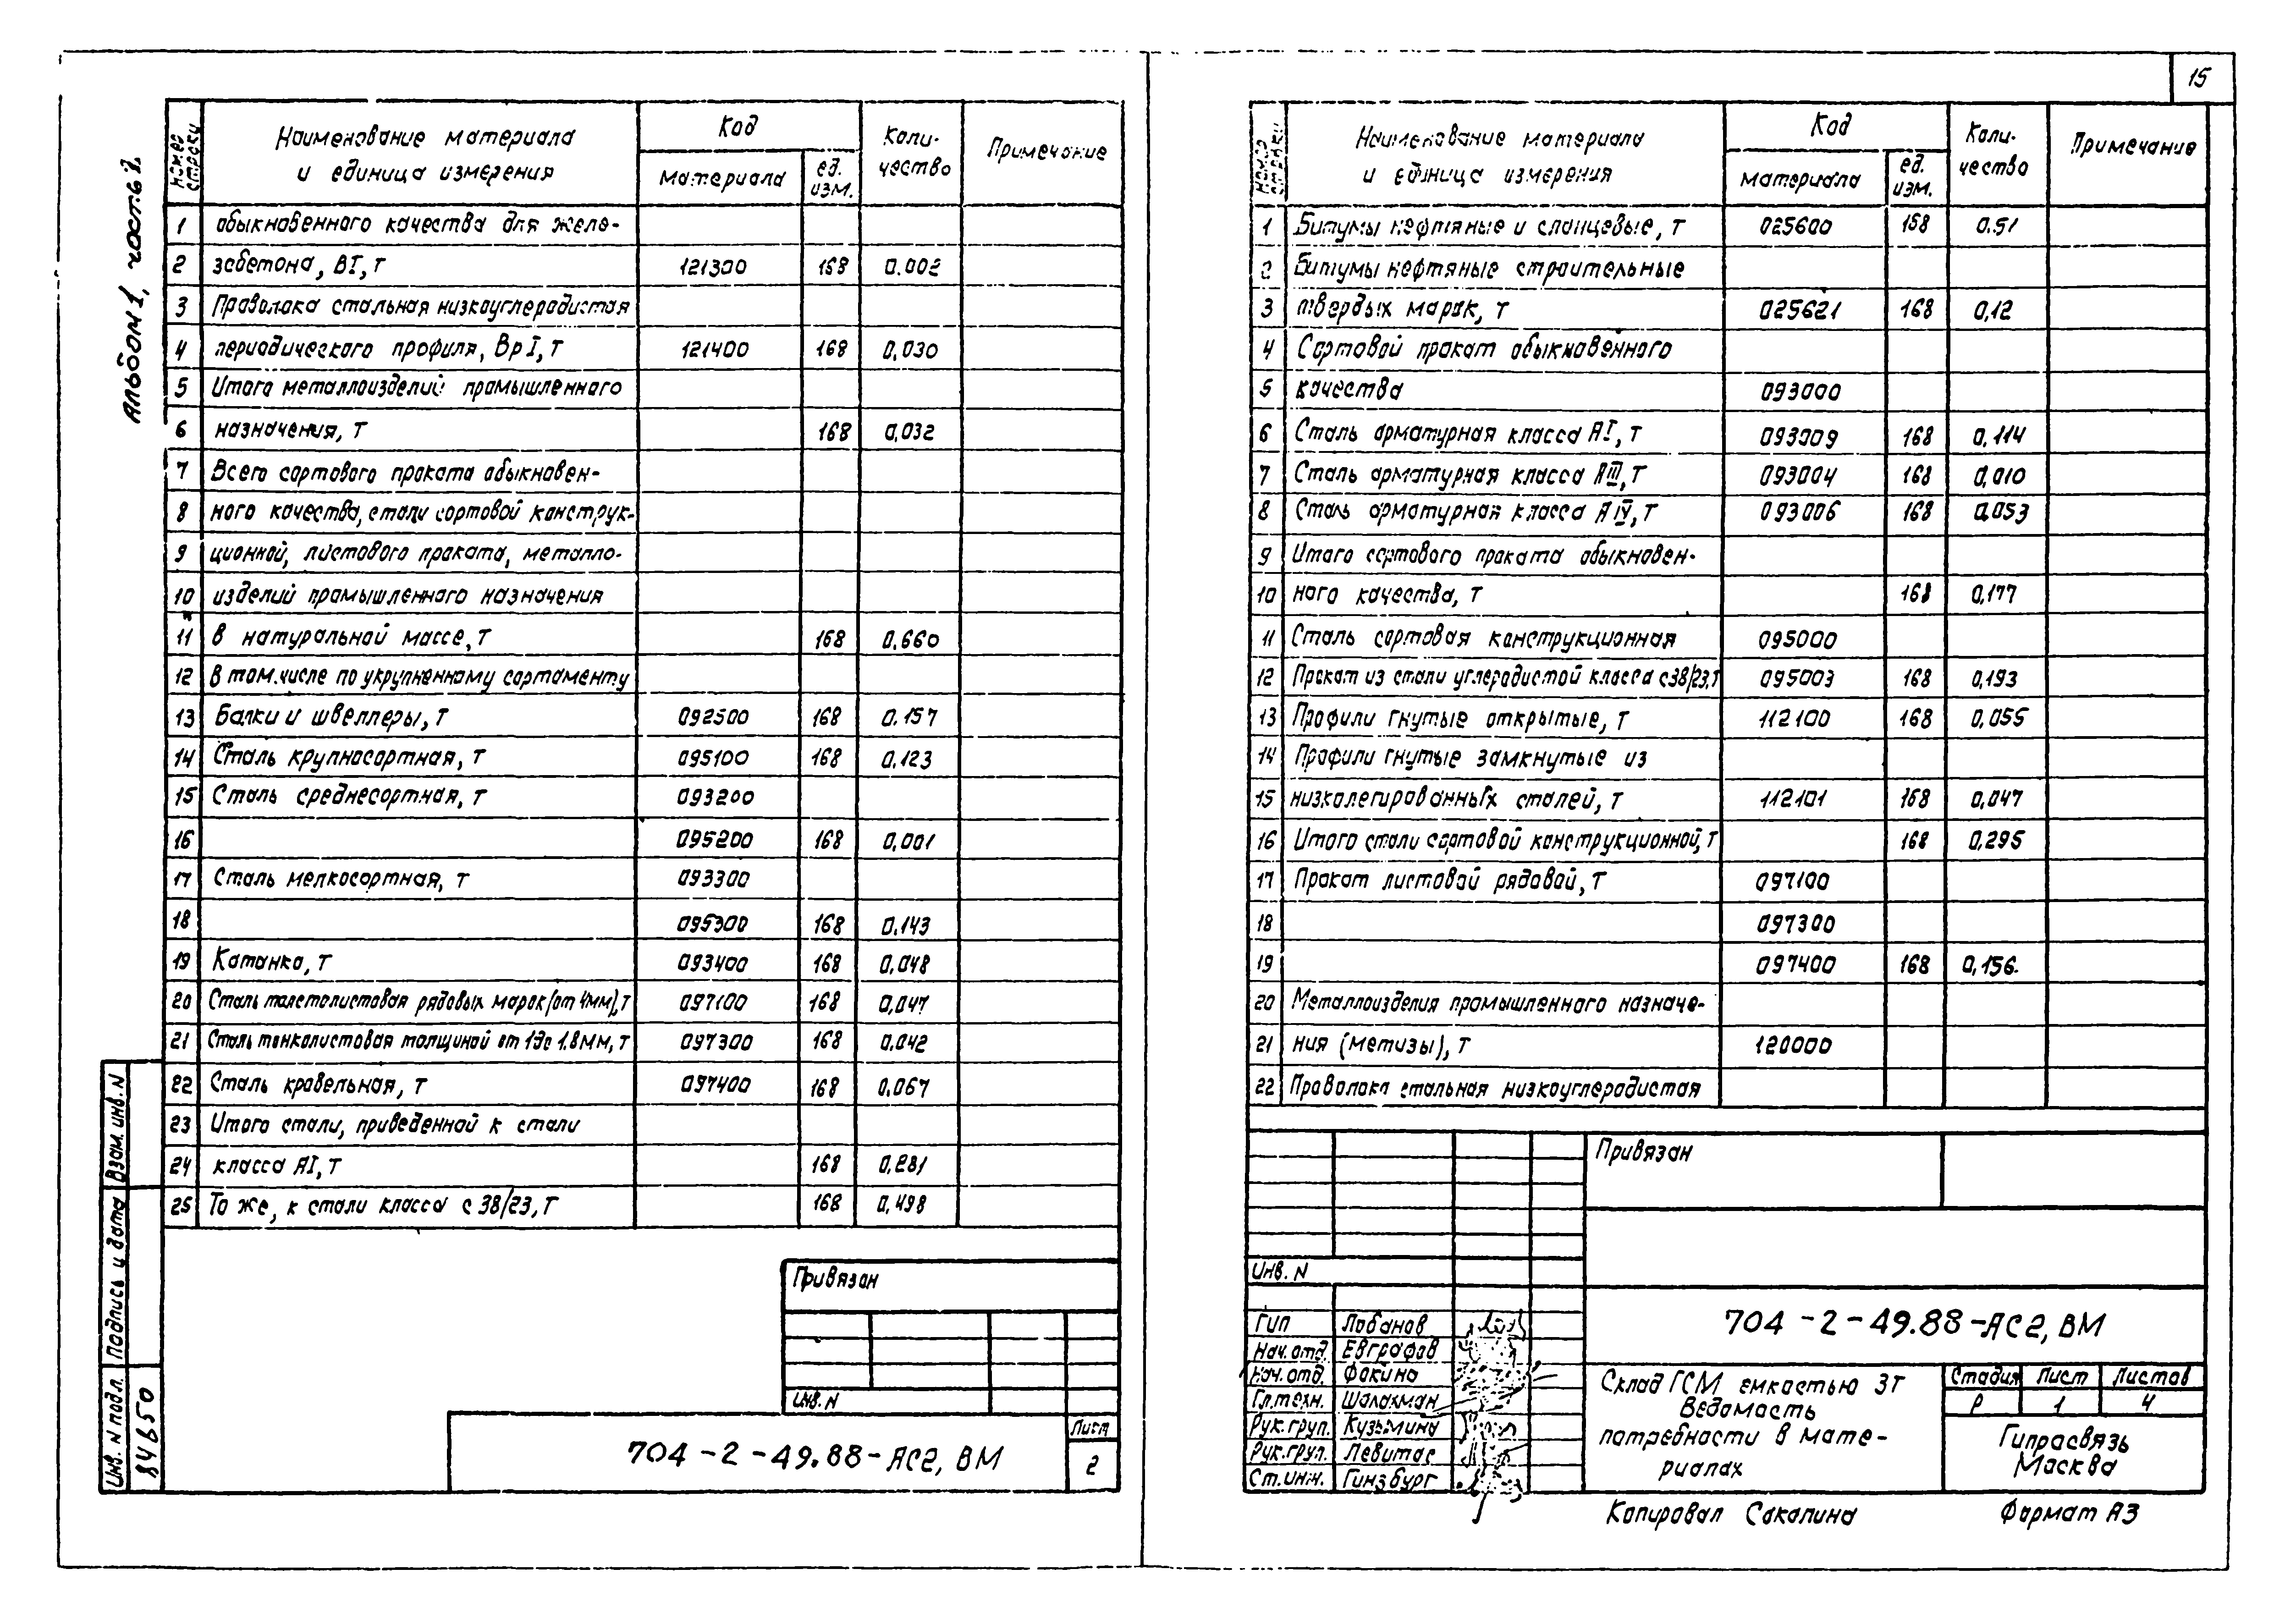 15
Альбом 1, часть 2
Номер строки | Наименование материала и единица измерения | Код материала | Код ед. изм. | Коли-чество | Примечание
1 обыкновенного качества для желе-
2 зобетона, ВI, т 121300 168 0.002
3 Проволока стальная низкоуглеродистая
4 периодического профиля, Вр I, т 121400 168 0,030
5 Итого металлоизделий промышленного
6 назначения, т 168 0,032
7 Всего сортового проката обыкновен-
8 ного качества, стали сортовой конструк-
9 ционной, листового проката, металло-
10 изделий промышленного назначения
11 в натуральной массе, т 168 0.660
12 в том числе по укрупненному сортаменту
13 Балки и швеллеры, т 092500 168 0.157
14 Сталь крупносортная, т 095100 168 0,123
15 Сталь среднесортная, т 093200
16 095200 168 0,001
17 Сталь мелкосортная, т 093300
18 095300 168 0.143
19 Катанка, т 093400 168 0,048
20 Сталь толстолистовая рядовых марок (от 4мм), т 097100 168 0,047
21 Сталь тонколистовая толщиной от 1 до 1.8 мм, т 097300 168 0.042
22 Сталь кровельная, т 097400 168 0.067
23 Итого стали, приведенной к стали
24 класса АI, т 168 0,281
25 То же, к стали класса с 38/23, т 168 0,498
Привязан
Инв. N
704-2-49.88-АС2, ВМ
Лист
2
Взам. инв. N
Подпись и дата
Инв. N подл.
Номер строки | Наименование материала и единица измерения | Код материала | Код ед. изм. | Коли-чество | Примечание
1 Битумы нефтяные и сланцевые, т 025600 158 0.51
2 Битумы нефтяные строительные
3 твердых марок, т 025621 168 0,12
4 Сортовой прокат обыкновенного
5 качества 093000
6 Сталь арматурная класса АI, т 093009 168 0,114
7 Сталь арматурная класса АIII, т 093004 168 0,010
8 Сталь арматурная класса АIV, т 093006 168 0,053
9 Итого сортового проката обыкновен-
10 ного качества, т 168 0,177
11 Сталь сортовая конструкционная 095000
12 Прокат из стали углеродистой класса с38/23,т 095003 168 0,193
13 Профили гнутые открытые, т 112100 168 0,055
14 Профили гнутые замкнутые из
15 низколегированных сталей, т 112101 168 0,047
16 Итого стали сортовой конструкционной, т 168 0,295
17 Прокат листовой рядовой, т 097100
18 097300
19 097400 168 0,156.
20 Металлоизделия промышленного назначе-
21 ния (метизы), т 120000
22 Проволока стальная низкоуглеродистая
Привязан
Инв. N
704-2-49.88-АС2, ВМ
Гип Лобанов
Нач. отд. Евграфов
Нач. отд. Фокина
Гл. техн. Шалахман
Рук. груп. Кузьмина
Рук. груп. Левитас
Ст. инж. Гинзбург
Склад ГСМ емкостью 3т
Ведомость
потребности в мате-
риалах
Стадия Лист Листов
Р 1 4
Гипросвязь
Москва
Копировал Сакалина
Формат А3